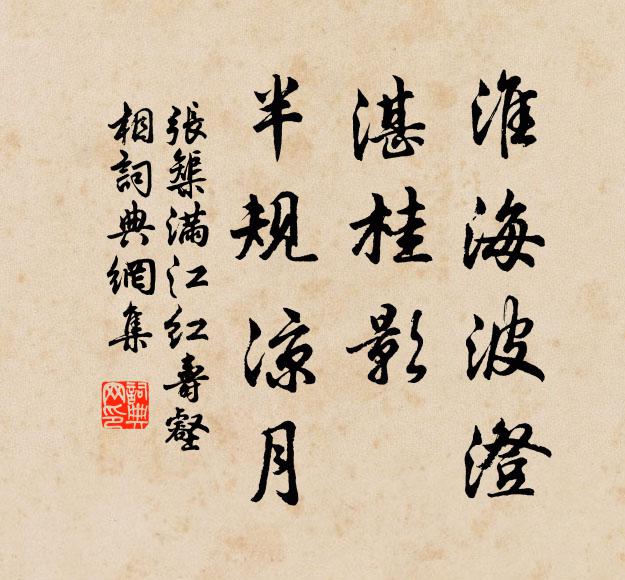 淮海波澄
湛桂影
半规凉月
張榘满江红壽壑
相詞典網集
詞典
网印